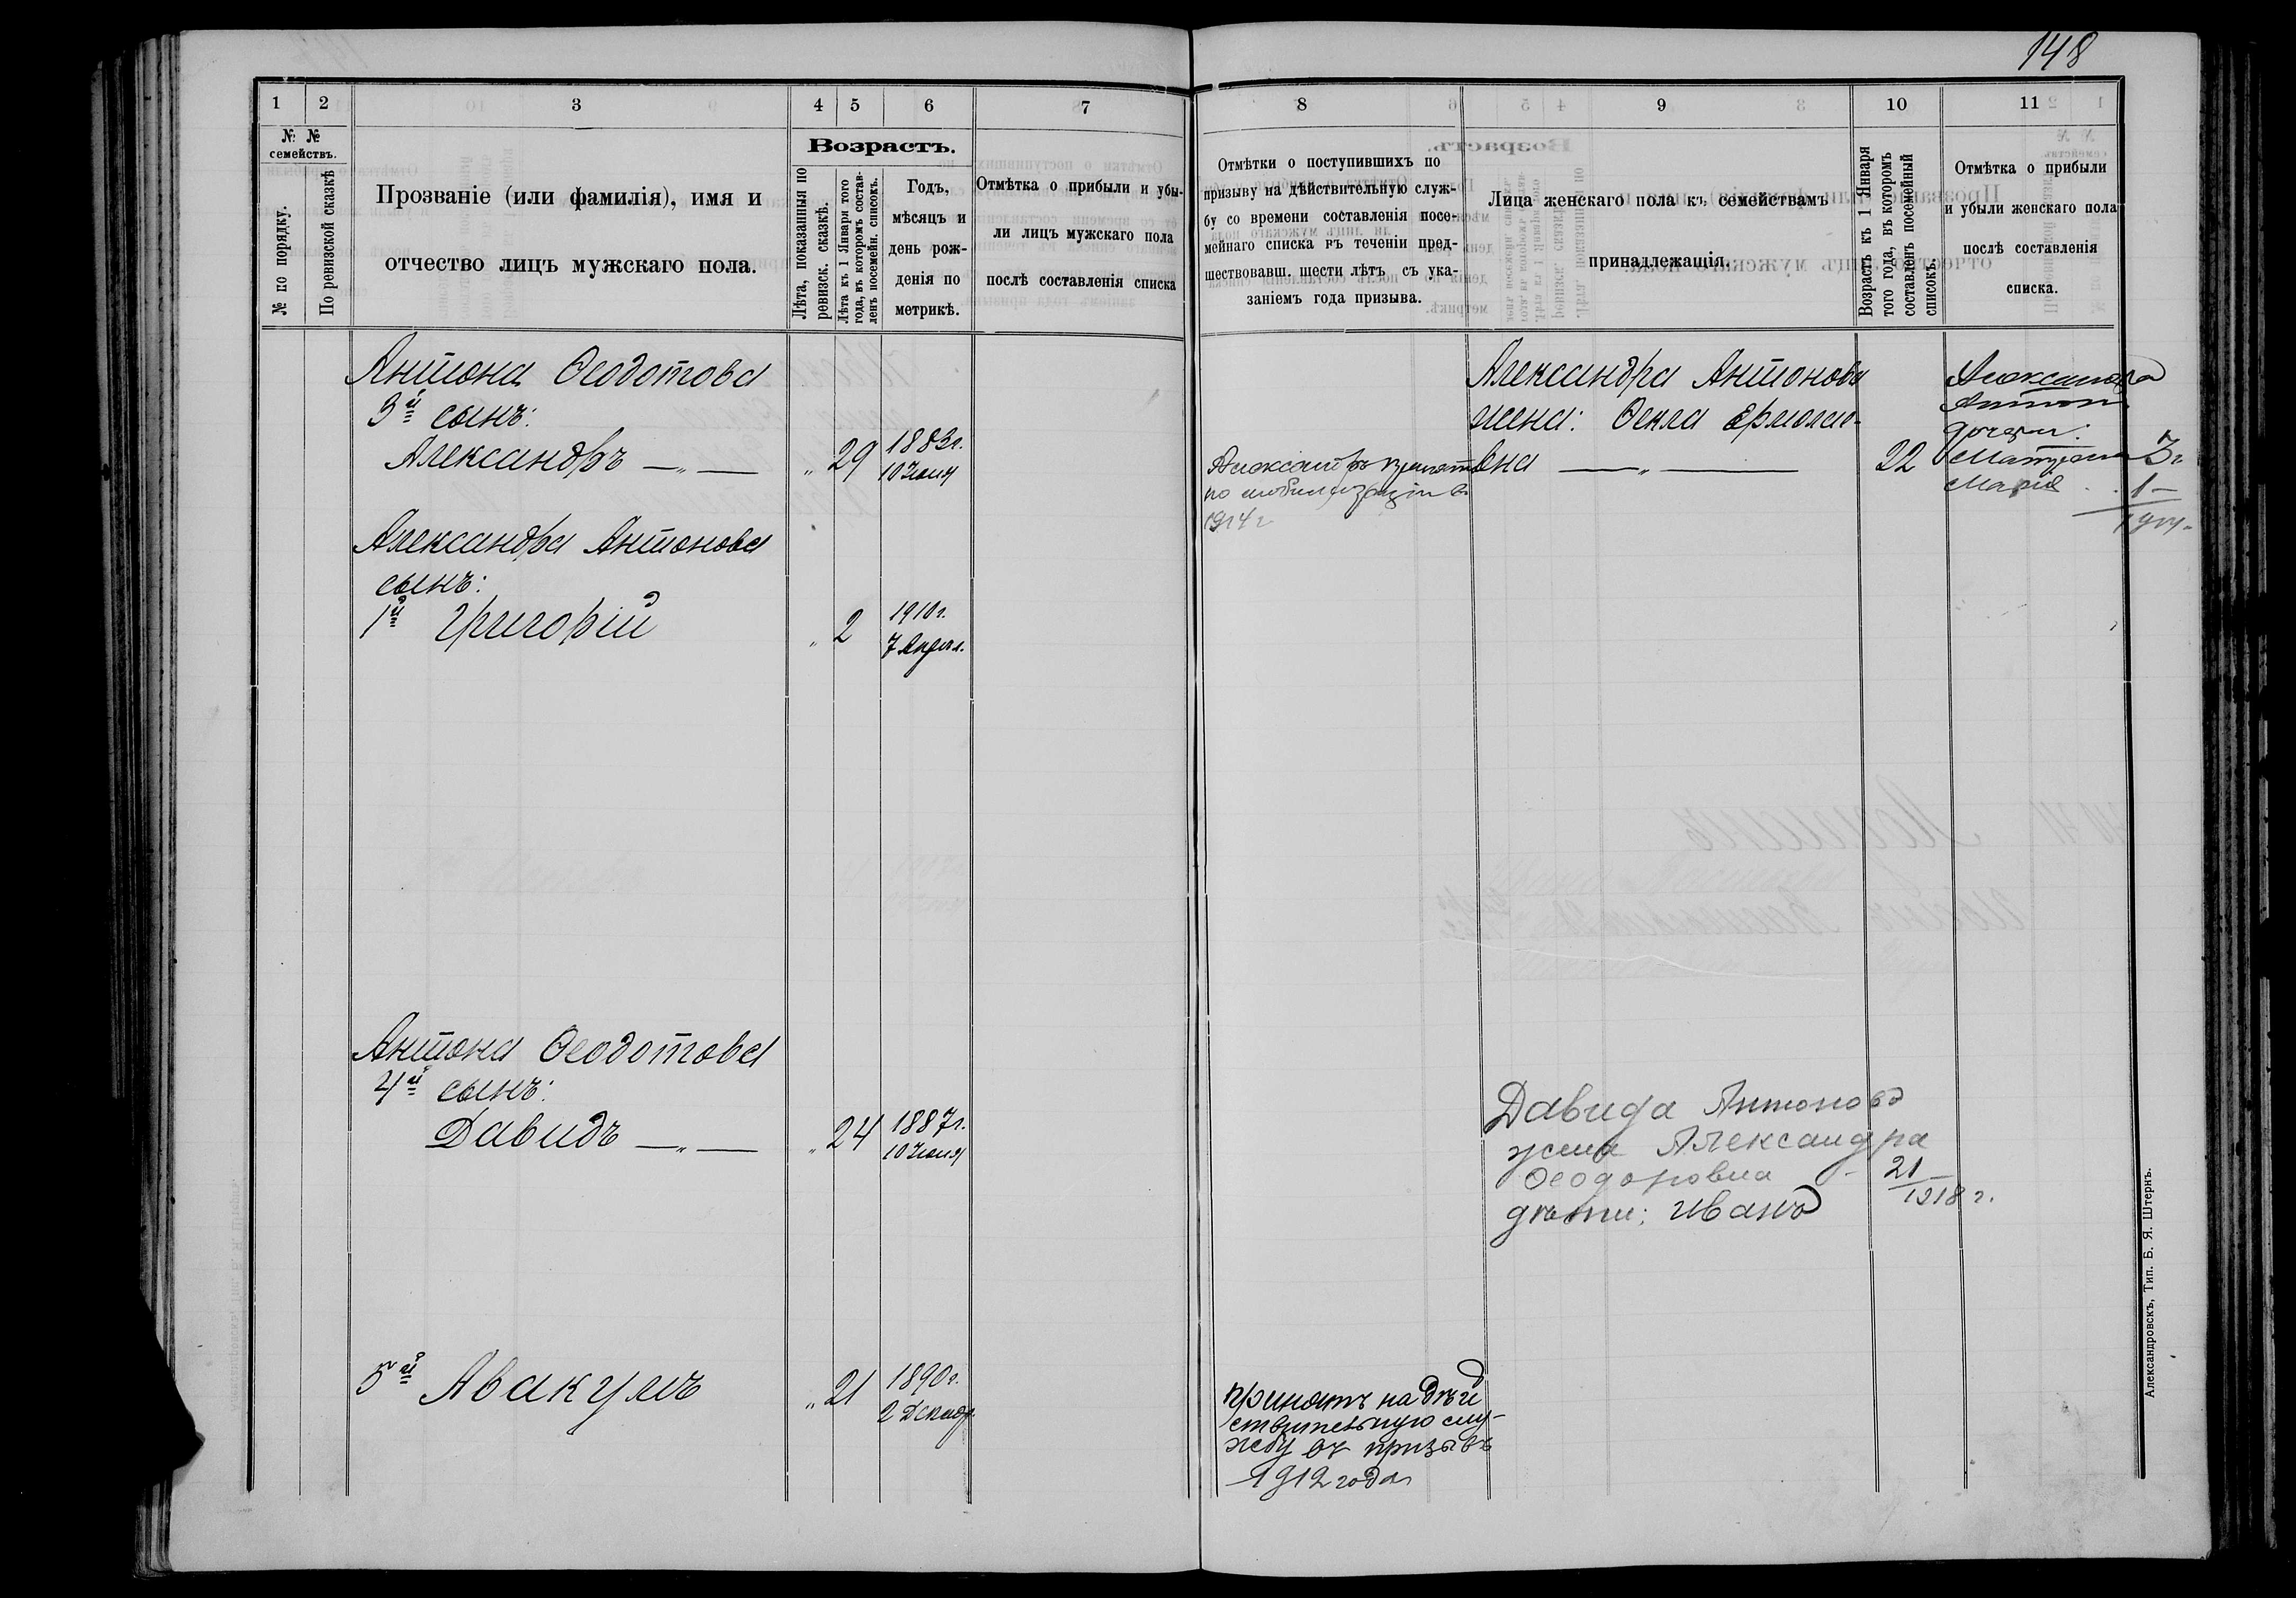 148
1 2 3 4 5 6 7
№ № семействъ.
№ по порядку.
По ревизской сказкѣ
Прозваніе (или фамилія), имя и
отчество лицъ мужскаго пола.
Возрастъ.
Лѣта, показанныя по
ревизск. сказкѣ.
Лѣта къ 1 Января того
года, въ которомъ состав-
ленъ посемейн. списокъ.
Годъ,
мѣсяцъ и
день рож-
денія по
метрикѣ.
Отмѣтка о прибыли и убы-
ли лицъ мужскаго пола
послѣ составленія списка
Антона Ѳеодотова
3й сынъ:
Александръ — „ — „ 29 1883г.
10 Іюня
Александра Антонова
сынъ:
1й Григорій „ 2 1910г.
7 Апрѣл.
Антона Ѳеодотова
4й сынъ:
Давидъ — „ — „ 24 1887г.
10 Іюня
5й Авакумъ „ 21 1890г.
2 Декабр.
8 9 10 11
Отмѣтки о поступившихъ по
призыву на дѣйствительную служ-
бу со времени составленія посе-
мейнаго списка въ теченіи пред-
шествовавш. шести лѣтъ съ ука-
заніемъ года призыва.
Лица женскаго пола къ семействамъ
принадлежащія.
Возрастъ къ 1 Января
того года, въ которомъ
составленъ посемейный
списокъ.
Отмѣтка о прибыли
и убыли женскаго пола
послѣ составленія
списка.
Александра Антонова
жена: Ѳекла Ермолае-
вна — „ — 22
Александръ принятъ
по мобилизаціи въ
1914 г
Александра
Антон.
дочери:
Матрена 3 г
Марія . . 1 —
Давида Антонова
жена Александра
Ѳеодоровна - 21
1918 г.
дѣти: Иванъ
принятъ на дѣй
ствительную слу-
жбу въ призывъ
1912 года
Александровскъ, Тип. Б. Я. Штернъ.